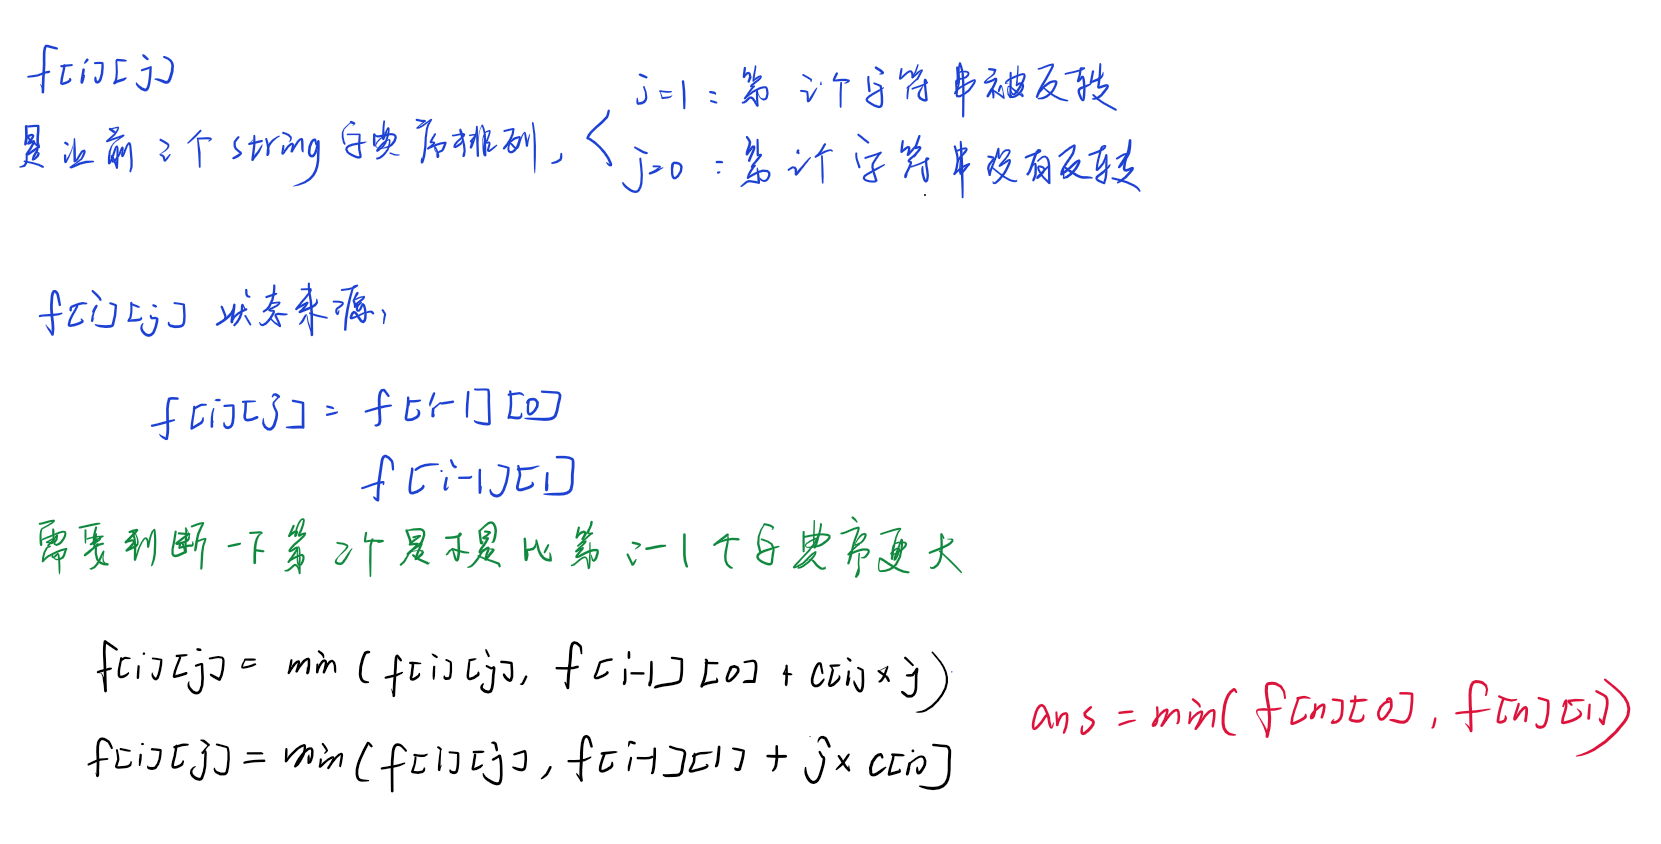 f[i][j]
是让前 i 个 string 字典序排列, { j=1 : 第 i 个字符串被反转
j=0 : 第 i 个字符串没有反转
f[i][j] 状态来源,
f[i][j] = f[i-1][0]
f[i-1][1]
需要判断一下第 i 个是不是比第 i-1 个字典序更大
f[i][j] = min ( f[i][j], f[i-1][0] + c[i] × j )
f[i][j] = min ( f[i][j], f[i-1][1] + j × c[i]
ans = min( f[n][0], f[n][1] )